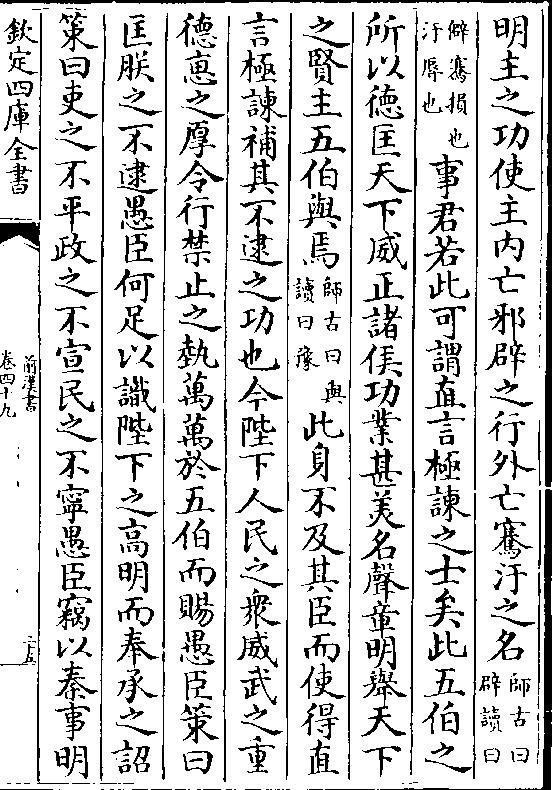 明主之功使主内亡邪辟之行外亡騫汙之名師古曰辟讀曰
僻騫損也汙辱也事君若此可謂直言極諫之士矣此五伯之
所以德匡天下威正諸侯功業甚美名聲章明舉天下
之賢主五伯與焉師古曰與讀曰豫此身不及其臣而使得直
言極諫補其不逮之功也今陛下人民之衆威武之重
德惠之厚令行禁止之埶萬萬於五伯而賜愚臣策曰
匡朕之不逮愚臣何足以識陛下之高明而奉承之詔
策曰吏之不平政之不宣民之不寧愚臣竊以秦事明
欽定四庫全書
前漢書
卷四十九
二五